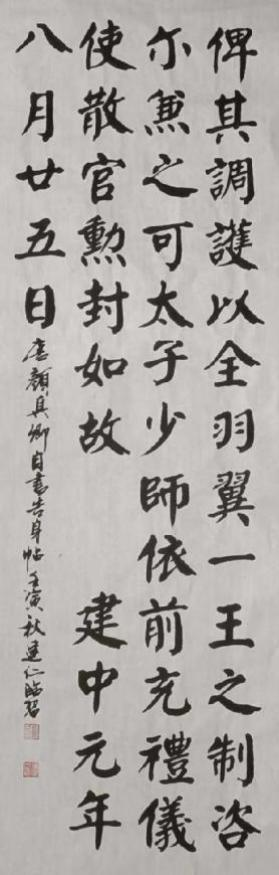 俾其調護以全羽翼一王之制咨
尔兼之可太子少師依前充禮儀
使散官勲封如故 建中元年
八月廿五日
唐顏真卿自書告身帖 壬寅秋建仁臨習